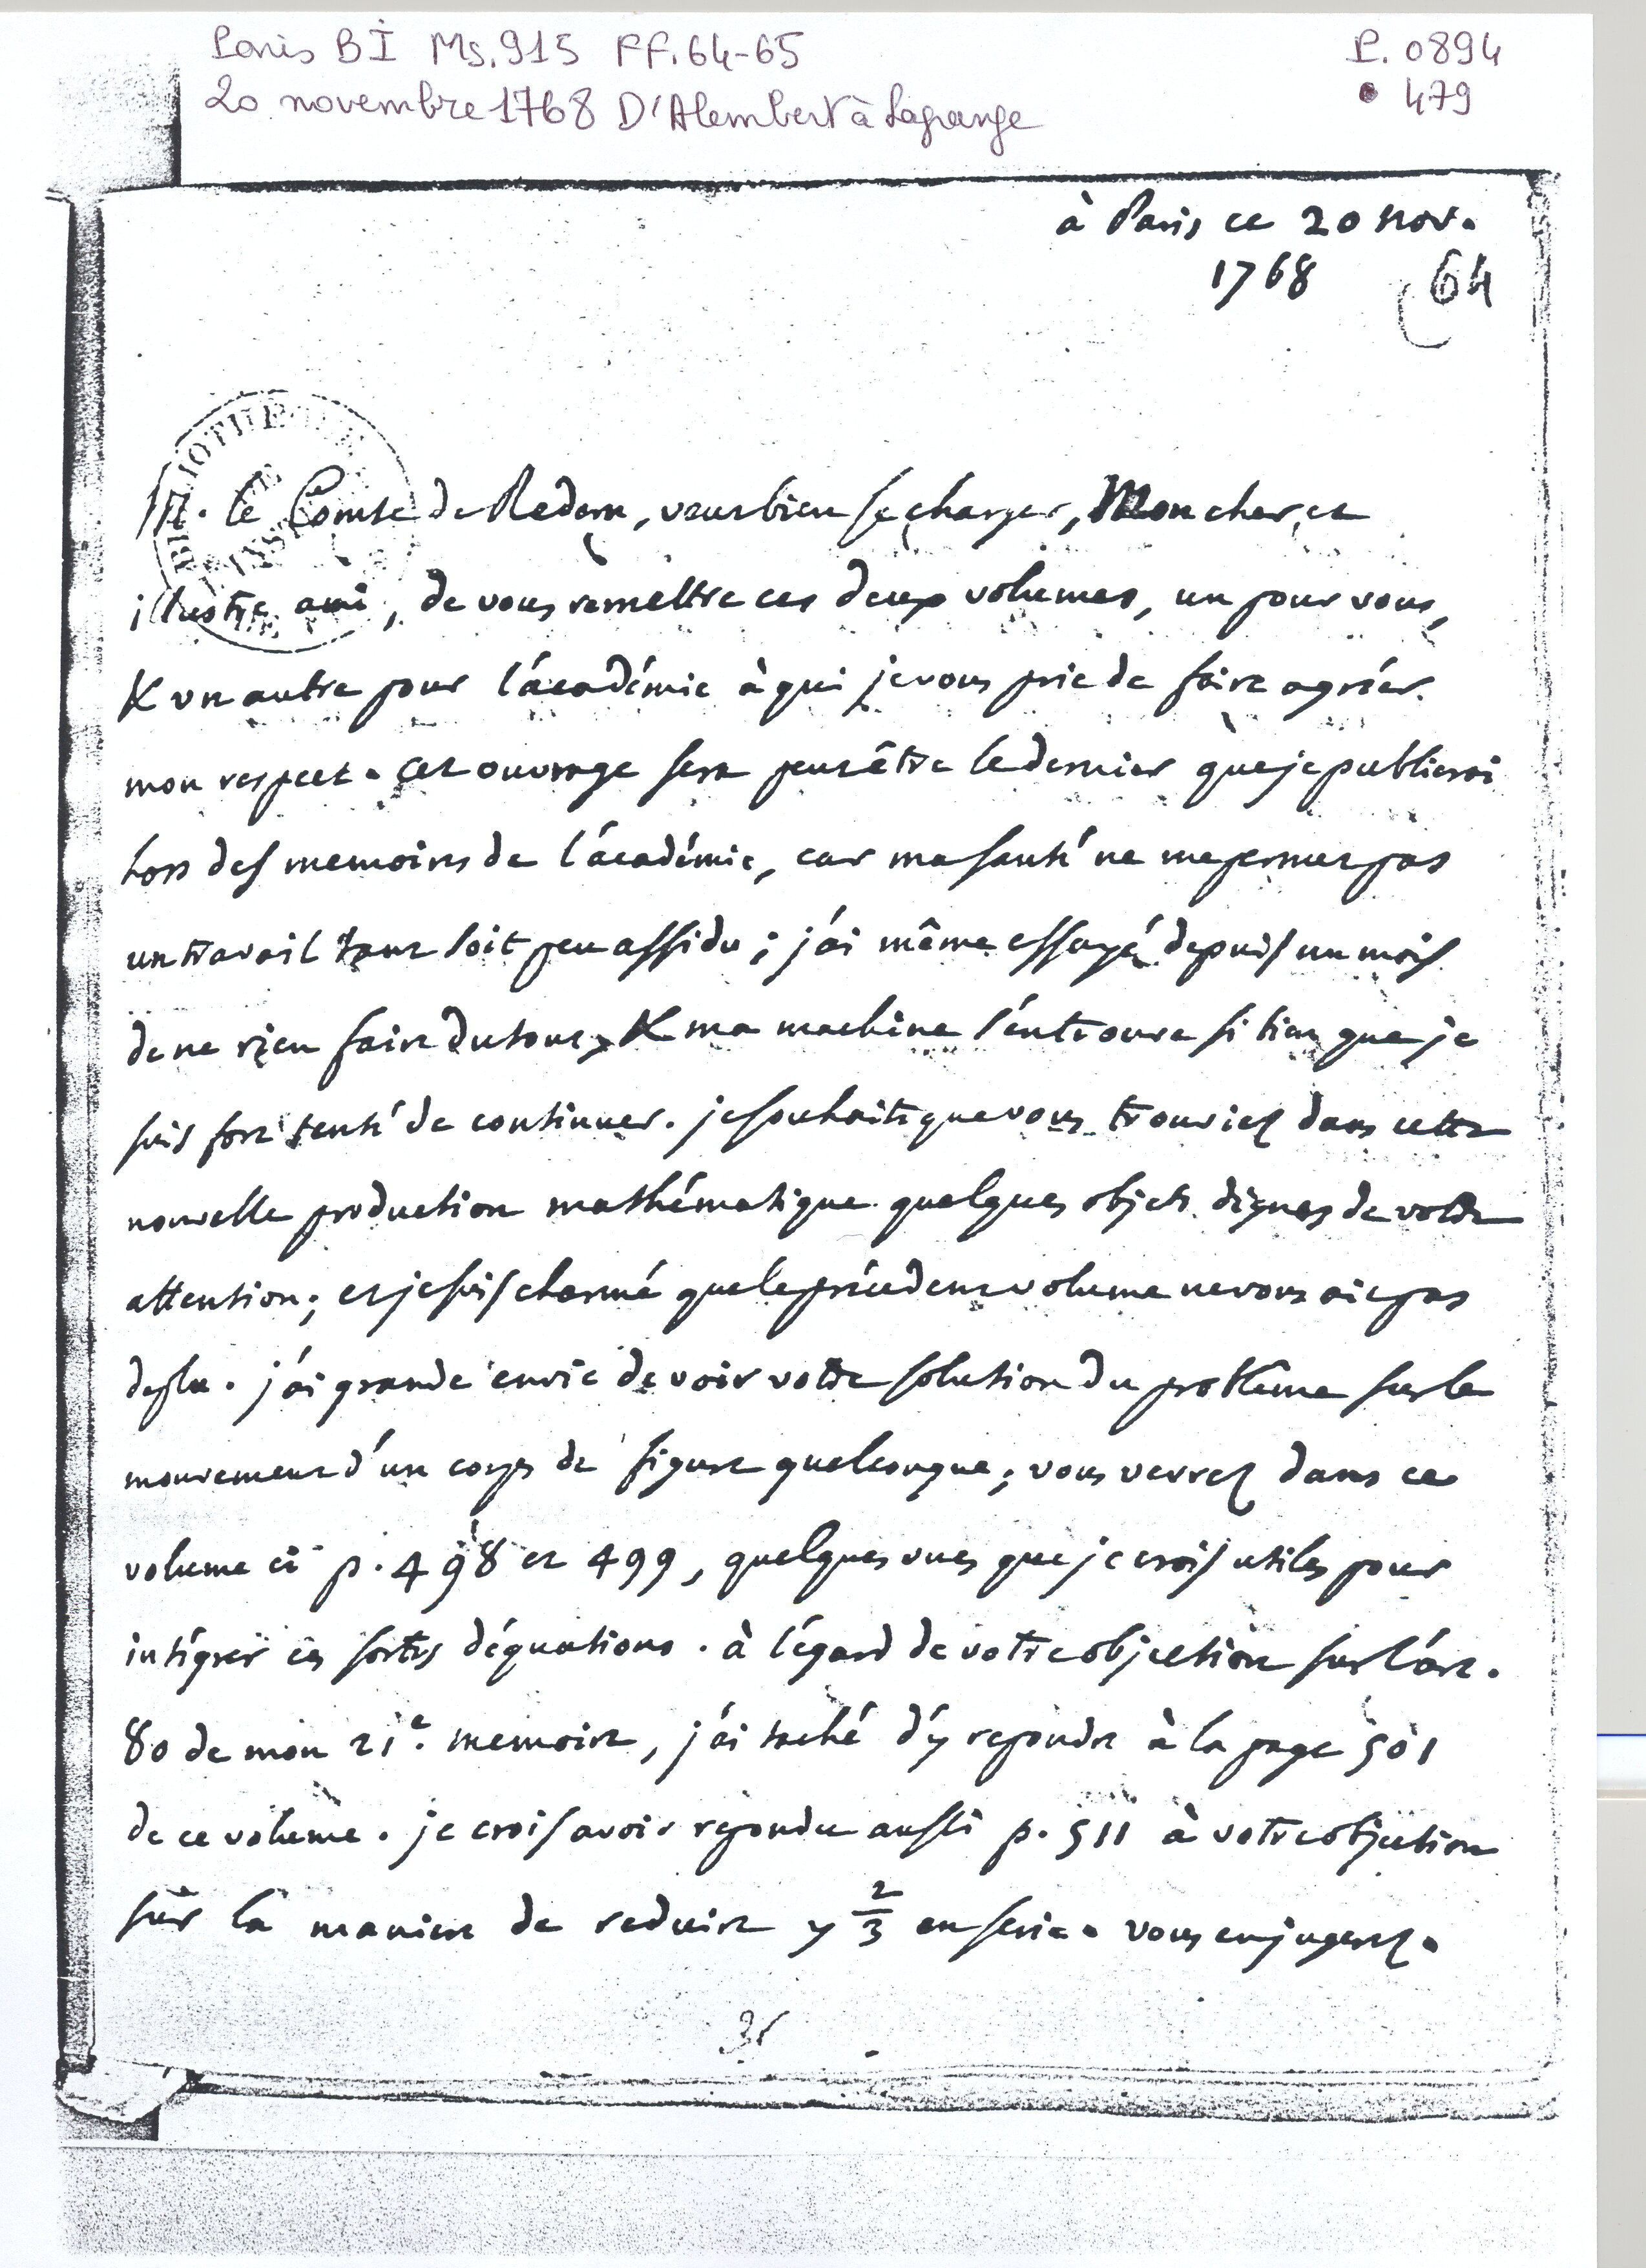 Paris BI Ms.915 FF.64-65
P. 0894
20 novembre 1768 D'Alembert à Lagrange
• 479
à Paris ce 20 nov.
1768
64
BIBLIOTHEQUE
M. le Comte de Redern, veut bien se charger, Mon cher, et
illustre ami, de vous remettre ces deux volumes, un pour vous,
& un autre pour l'académie à qui je vous prie de faire agréer
mon respect. cet ouvrage sera peut être le dernier que je publierai
hors des memoires de l'académie, car ma santé ne me permet pas
un travail tant soit peu assidu ; j'ai même essayé depuis un mois
de ne rien faire du tout, & ma machine s'en trouve si bien que je
suis fort tenté de continuer. je souhaite que vous trouviez dans cette
nouvelle production mathématique quelques objets dignes de votre
attention ; et je suis charmé que le précedent volume ne vous ait pas
deplu. j'ai grande envie de voir votre solution du problême sur le
mouvement d'un corps de figure quelconque ; vous verrez dans ce
volume ci p. 498 et 499, quelques vues que je crois utiles pour
intégrer ces sortes d'équations. à l'égard de votre objection sur l'art.
80 de mon 21e. memoire, j'ai taché d'y repondre à la page 501
de ce volume. je crois avoir repondu aussi p. 511 à votre objection
sur la maniere de reduire y 2/3 en serie. vous en jugerez.